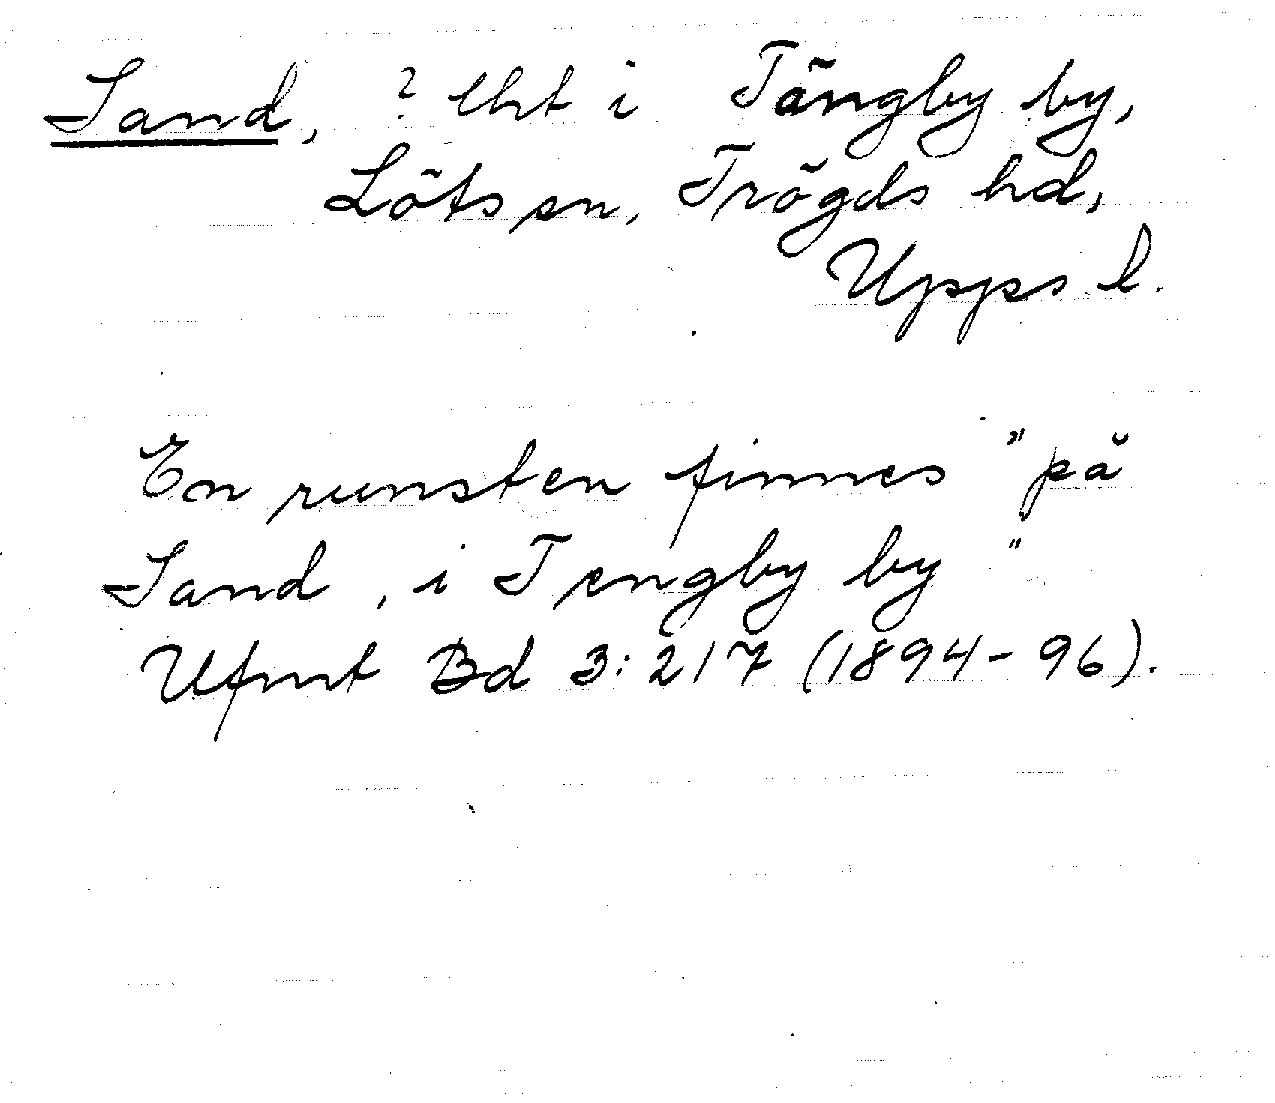 Sand, ? lht i Tängby by,
Löts sn, Trögds hd,
Upps l.
En runsten finnes "på
Sand, i Tengby by"
Ufmt Bd 3:217 (1894-96).